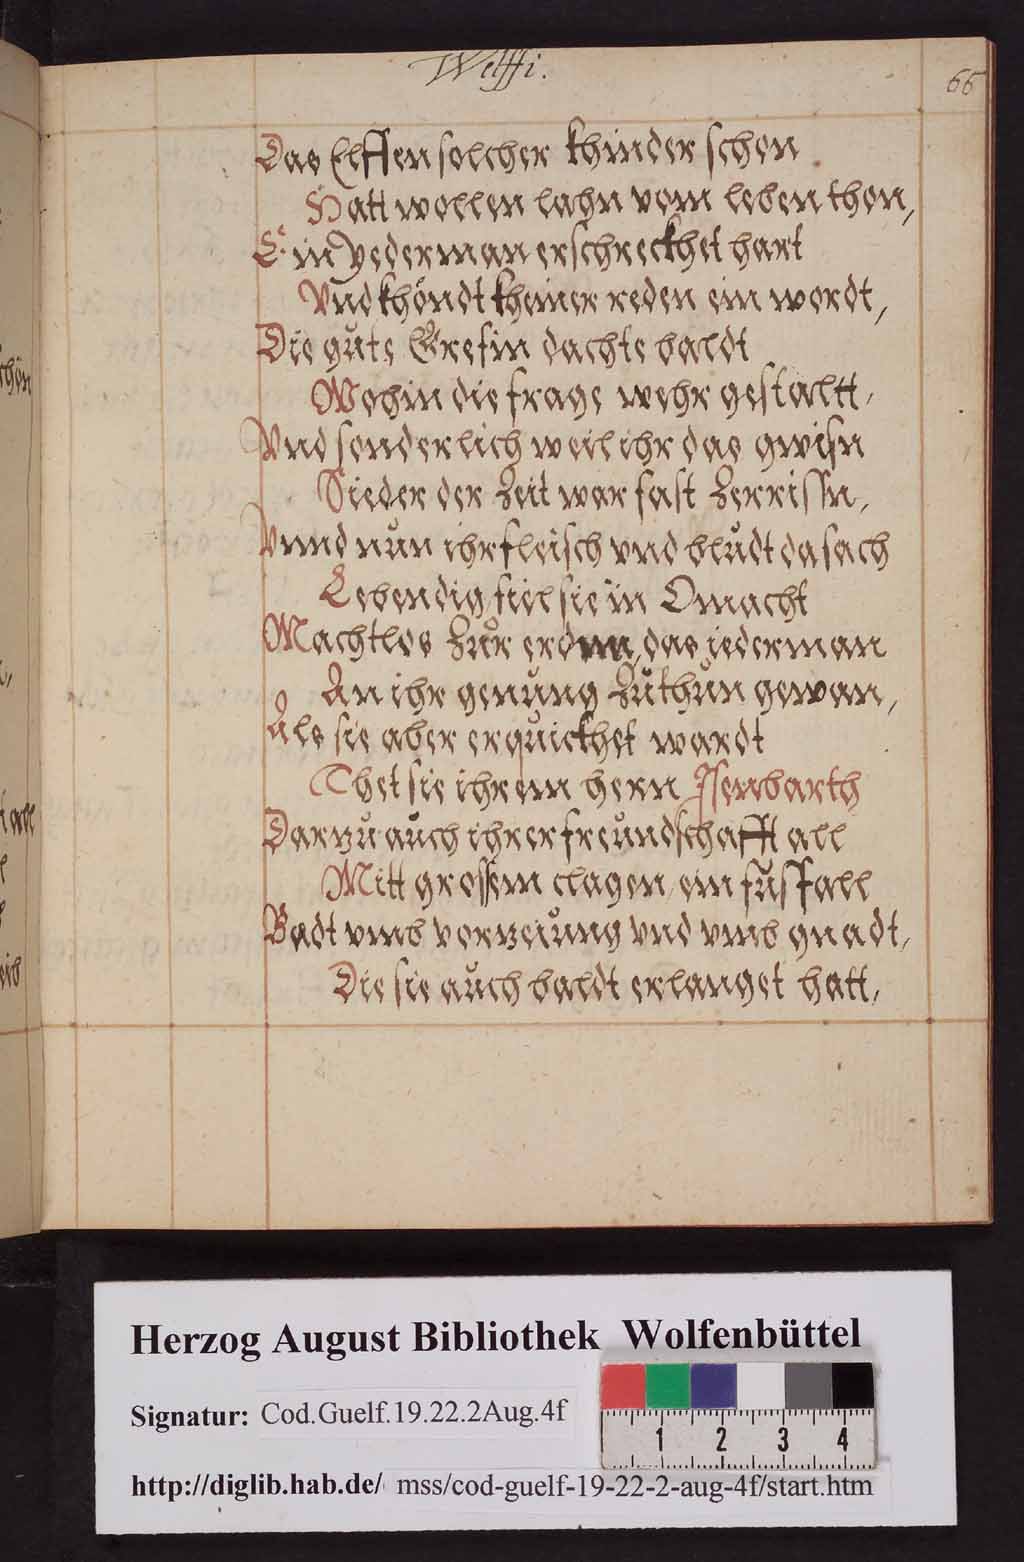 Welffi.
66
Das Elffen solcher khinder schon
Hatt wollen lahn vom leben thon,
Ein Yederman erschreckhet hart
Vnd khöndt kheiner reden ein wordt,
Die gůte Grefin dachte baldt
Wohin die frage wehr gestaltt,
Vnd sonderlich weil ihr das gwisn
Sieder der Zeit war fast Zerrissn,
Vnnd nůn ihr fleisch vnd blůdt da sach
Lebendig, fiel sie in Omacht
Machtlos Zůr erdnn, das iederman
An ihr genůng Zůthůn gewan,
Als sie aber erquickhet wardt
Thet sie ihrem hern Isenbarth
Darzů auch ihrer freůndschafft all
Mitt grossem clagen, ein fůsfall
Badt vmb verzeiůng vnd vmb gnadt,
Die sie aůch baldt erlanget hatt,
chön
all
l
eib
Herzog August Bibliothek Wolfenbüttel
Signatur: Cod.Guelf.19.22.2Aug.4f
1 2 3 4
http://diglib.hab.de/ mss/cod-guelf-19-22-2-aug-4f/start.htm